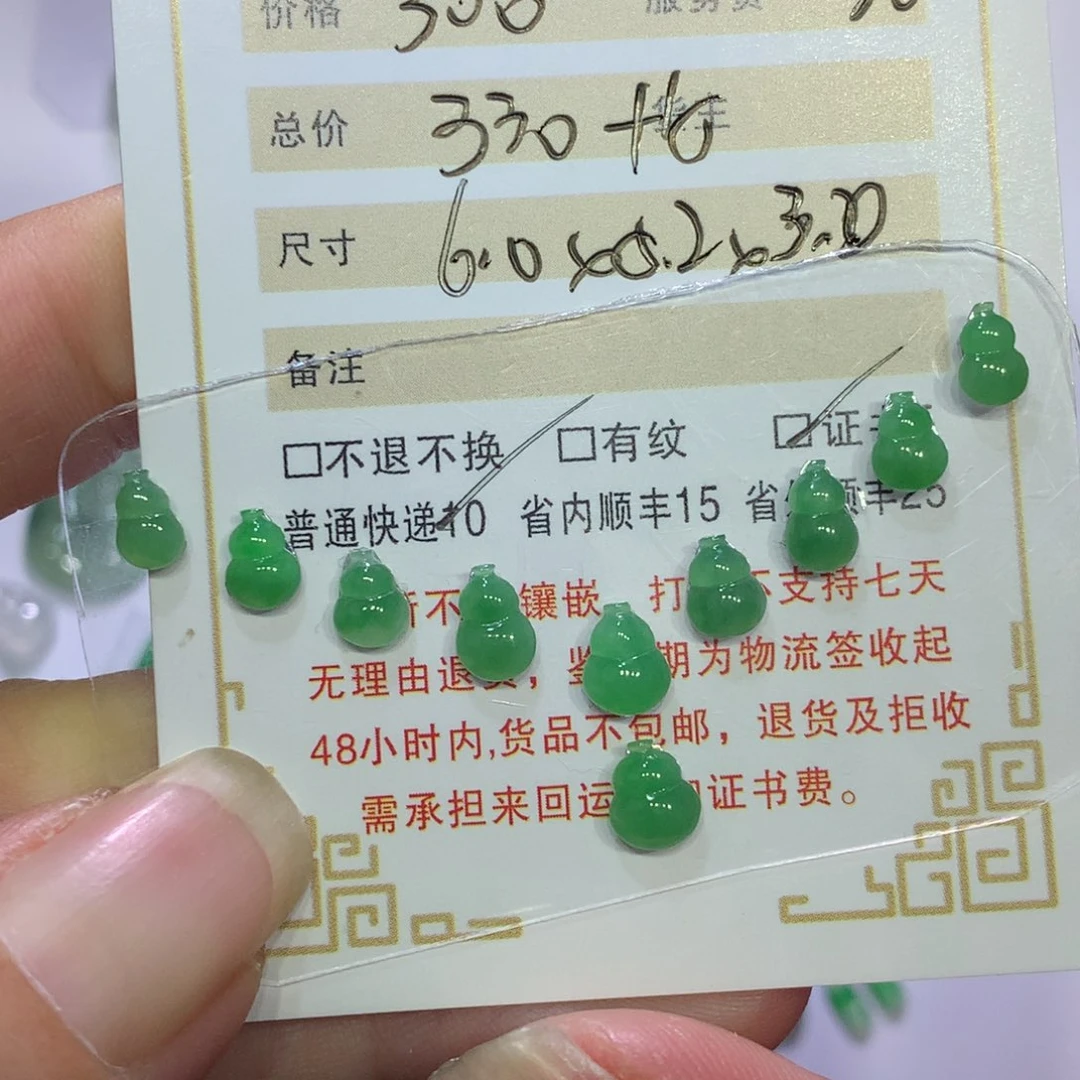 价格 300 服务费
总价 330+10
尺寸 6.0x
备注
□不退不换 □有纹 □证
普通快递10 省内顺丰15 省 顺丰25
不 镶嵌 打 不支持七天
无理由退货，鉴 期为物流签收起
48小时内,货品不包邮，退货及拒收
需承担来回运 证书费。